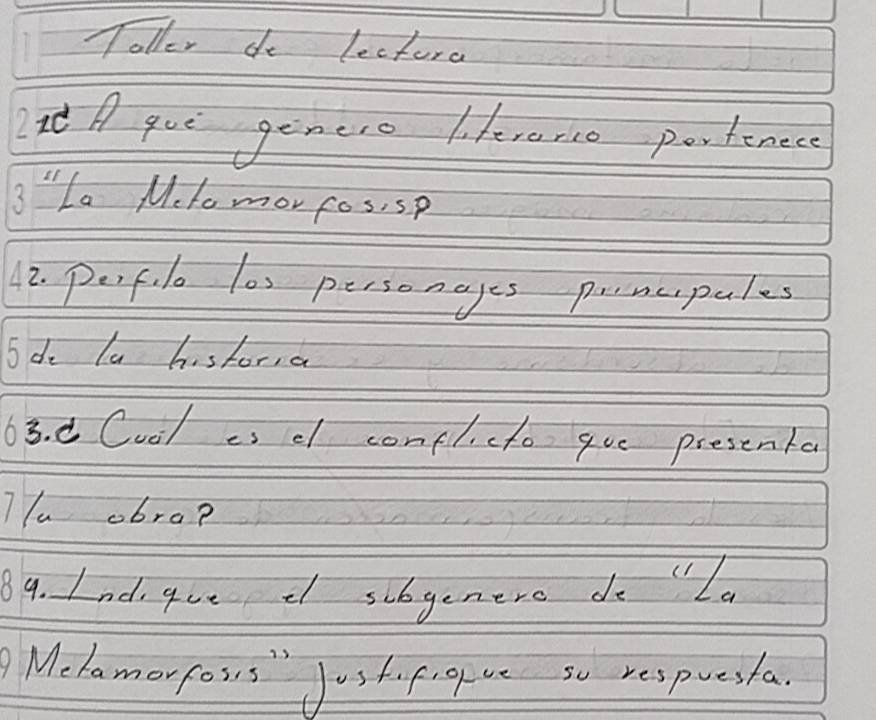 1 Taller de lectura
2 1¿ A qué género literario pertenece
3 "La Metamorfosis?
4 2. Perfila los personajes principales
5 de la historia
6 3.¿ Cuál es el conflicto que presenta
7 la obra?
8 4. Indique el subgenero de "La
9 Metamorfosis" Justifique su respuesta.